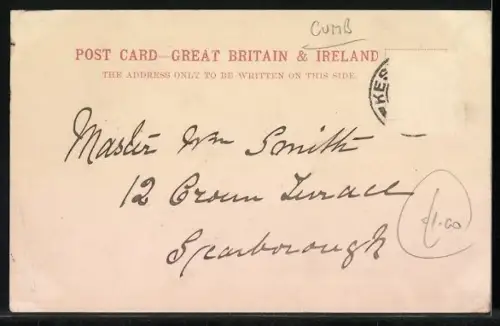 CUMB
POST CARD—GREAT BRITAIN & IRELAND
THE ADDRESS ONLY TO BE WRITTEN ON THIS SIDE.
KES
Master Wm Smith
12 Crown Terrace
Scarborough
£1.00